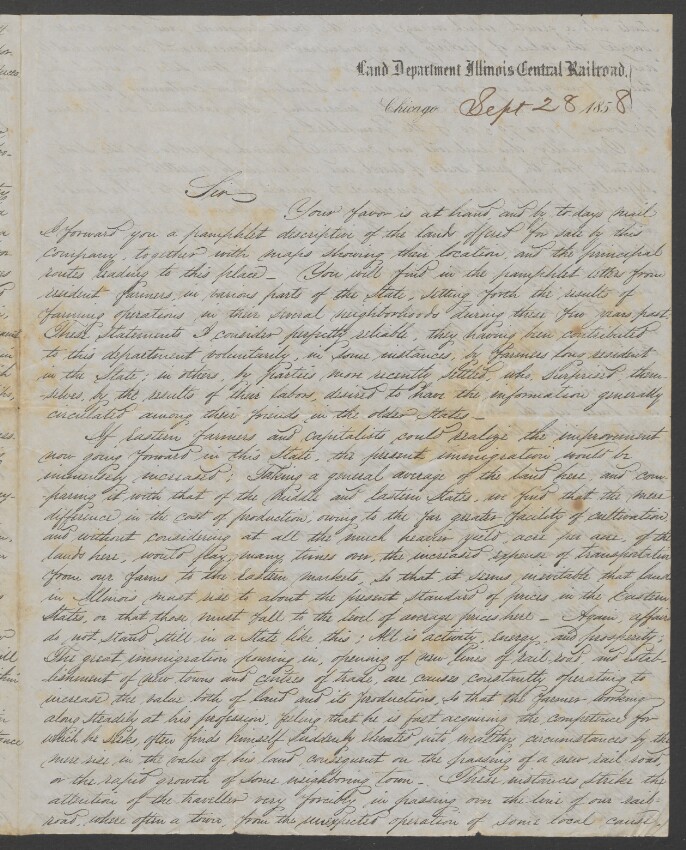 Land Department Illinois Central Railroad.
Chicago Sept 28 1858
Sir
Your favor is at hand, and by to days mail
I forward you a pamphlet descriptive of the lands offered for sale by this
company, together with maps showing their location, and the principal
routes leading to this place - You will find in the pamphlet letters from
resident farmers, in various parts of the State, setting forth the results of
farming operations in their several neighborhoods during three few years past.
These statements I consider perfectly reliable, they having been contributed
to this department voluntarily, in some instances, by farmers long resident
in the State; in others, by parties more recently settled, who, surprised them-
-selves, by the results of their labors, desired to have the information generally
circulated among their friends in the older States -
If Eastern farmers and capitalists could realize the improvement
now going forward in this State, the present immigration would be
immensely increased; Taking a general average of the land here, and com-
paring it with that of the Middle and Eastern States, we find that the mere
difference in the cost of production, owing to the far greater facility of cultivation
and without considering at all the much heavier yield, acre per acre, of the
lands here, would pay, many times over, the increased expense of transportation
from our farms to the Eastern markets, so that it seems inevitable that lands
in Illinois must rise to about the present standard of prices in the Eastern
States, or that those must fall to the level of average prices here - Again, affairs
do not stand still in a State like this; All is activity, energy, and prosperity;
The great immigration pouring in, opening of new lines of rail-road, and estab-
lishment of new towns and centres of trade, are causes constantly operating to
increase the value both of land and its productions, so that the farmer working
along steadily at his profession, feeling that he is fast acquiring the competence for
which he seeks, often finds himself suddenly elevated into wealthy circumstances by the
mere rise in the value of his land, consequent on the passing of a new rail road,
or the rapid growth of some neighboring town - These instances strike the
attention of the traveller very forcibly, in passing over the line of our rail-
road, where often a town, from the unexpected operation of some local cause,